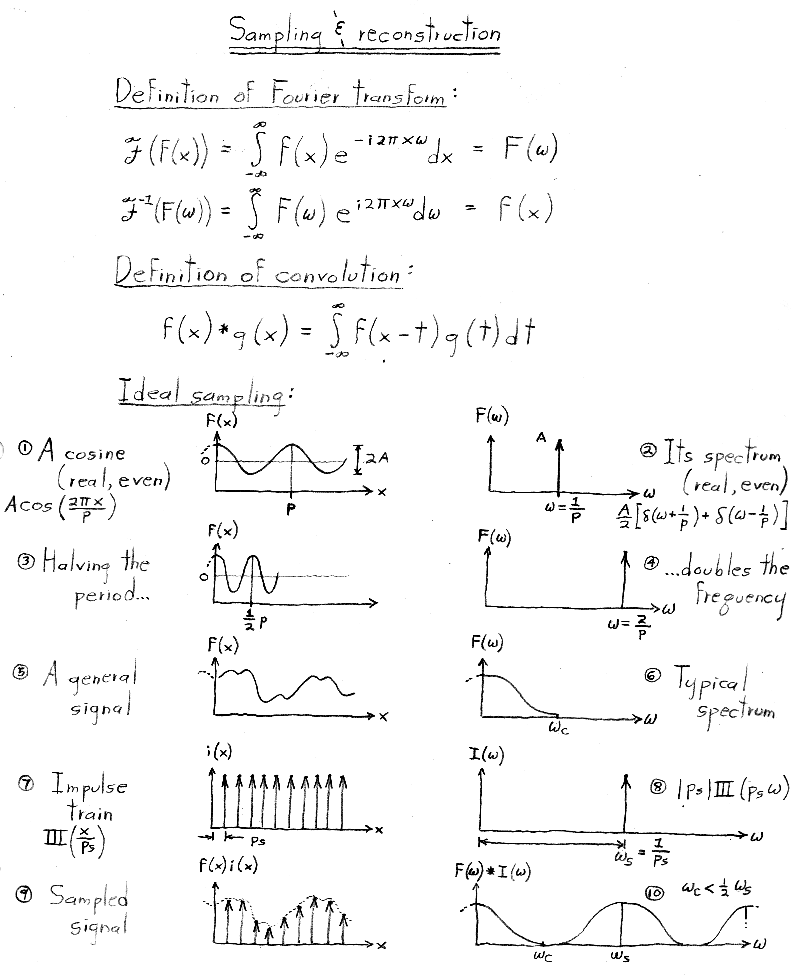 Sampling & reconstruction
Definition of Fourier transform:
ℱ(f(x)) = ∫_{-∞}^{∞} f(x) e^{-i2πxω} dx = F(ω)
ℱ^{-1}(F(ω)) = ∫_{-∞}^{∞} F(ω) e^{i2πxω} dω = f(x)
Definition of convolution:
f(x) * g(x) = ∫_{-∞}^{∞} f(x-t) g(t) dt
Ideal sampling:
① A cosine
(real, even)
A cos(2πx/p)
f(x)
0
2A
x
p
F(ω)
A
ω
ω = 1/p
② Its spectrum
(real, even)
A/2 [δ(ω+1/p) + δ(ω-1/p)]
③ Halving the
period...
f(x)
0
1/2 p
F(ω)
ω
ω = 2/p
④ ...doubles the
frequency
⑤ A general
signal
f(x)
x
F(ω)
ω_c
ω
⑥ Typical
spectrum
⑦ Impulse
train
III(x/p_s)
i(x)
x
p_s
I(ω)
ω
ω_s = 1/p_s
⑧ |p_s| III(p_s ω)
⑨ Sampled
signal
f(x) i(x)
x
F(ω) * I(ω)
⑩ ω_c < 1/2 ω_s
ω
ω_c
ω_s